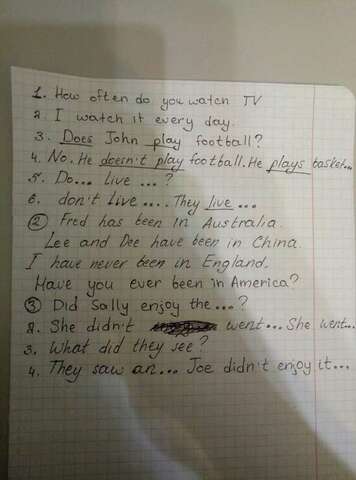 1. How often do you watch TV
2. I watch it every day.
3. Does John play football?
4. No. He doesn't play football. He plays basket...
5. Do... live ...?
6. don't live .... They live ...
② Fred has been in Australia.
Lee and Dee have been in China.
I have never been in England.
Have you ever been in America?
③ Did Sally enjoy the...?
2. She didn't went... She went...
3. What did they see?
4. They saw an... Joe didn't enjoy it...